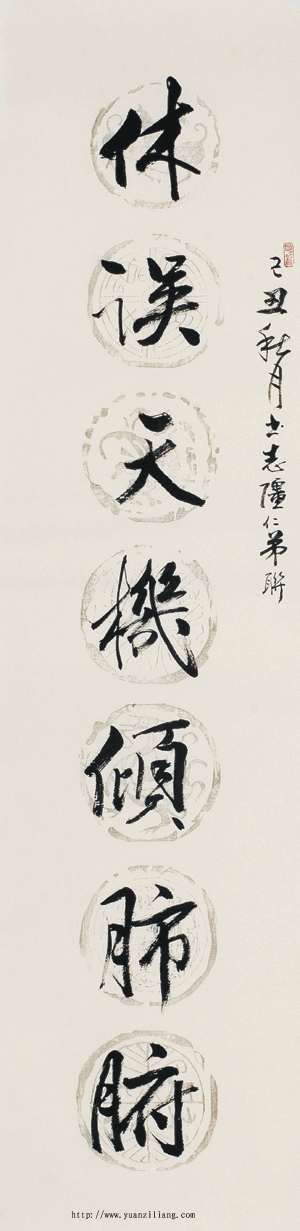 己丑秋月书志疆仁弟联
休误天機傾肺腑
http://www.yuanziliang.com